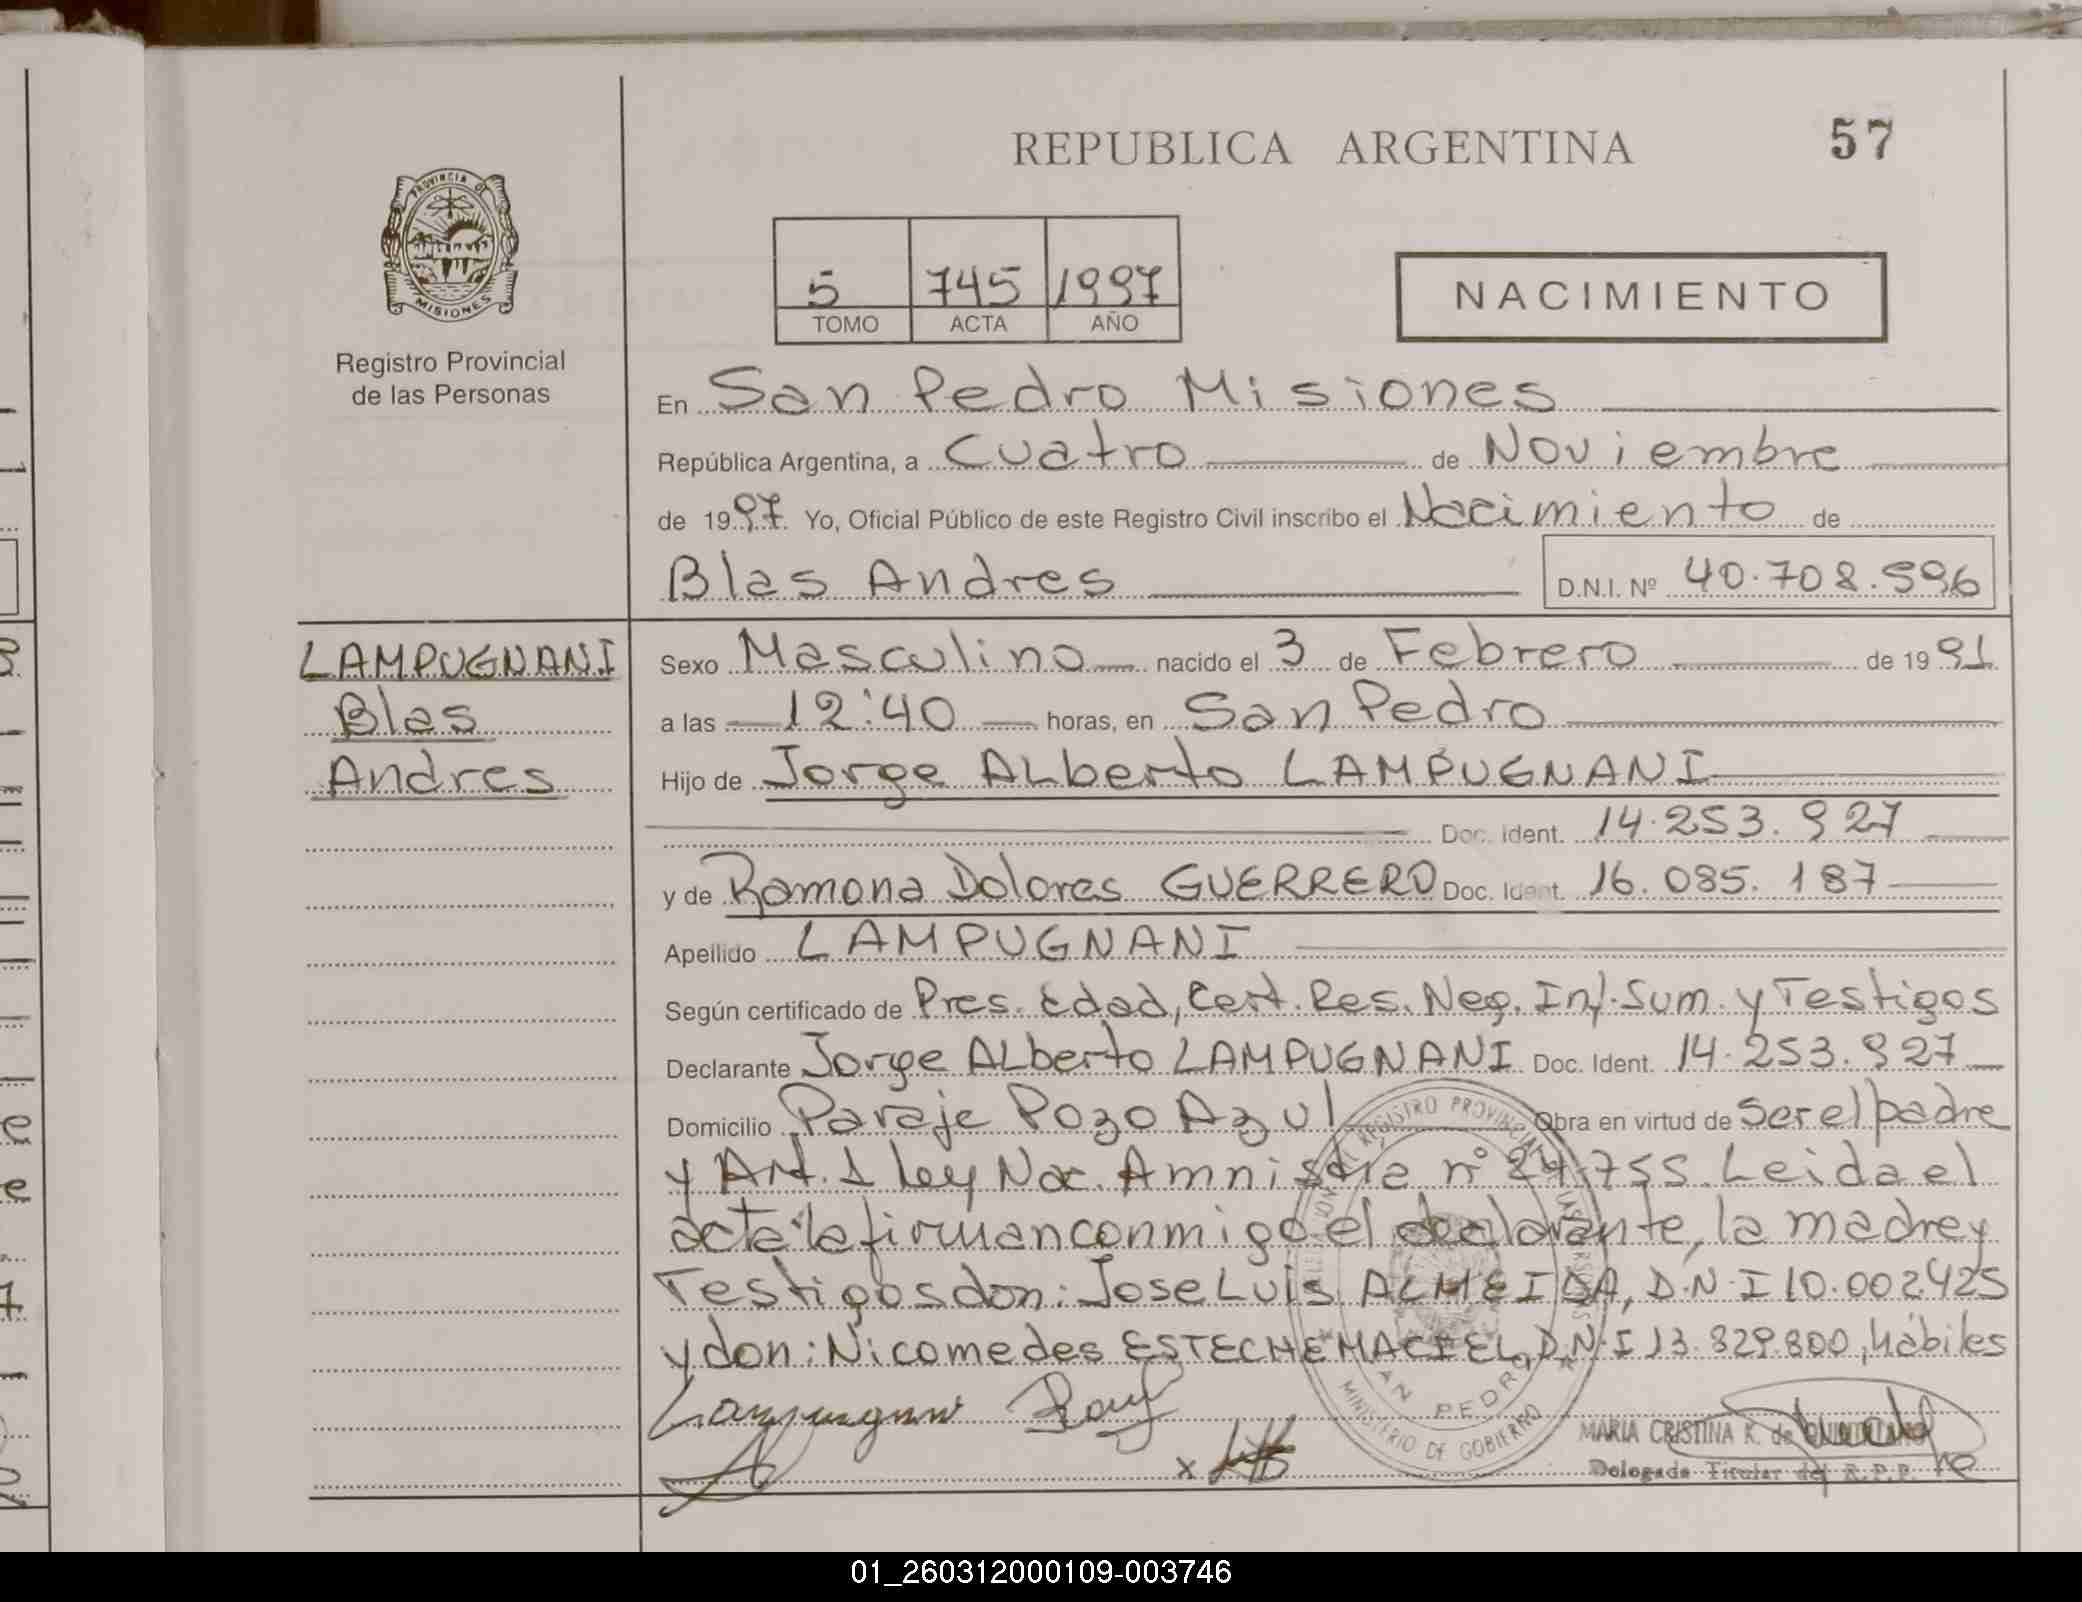 REPUBLICA ARGENTINA
57
PROVINCIA DE
MISIONES
Registro Provincial
de las Personas
5 745 1997
TOMO ACTA AÑO
NACIMIENTO
En San Pedro Misiones
República Argentina, a Cuatro de Noviembre
de 1997. Yo, Oficial Público de este Registro Civil inscribo el Nacimiento de
Blas Andres D.N.I. Nº 40.708.596
LAMPUGNANI
Blas
Andres
Sexo Masculino nacido el 3 de Febrero de 1991
a las 12:40 horas, en San Pedro
Hijo de Jorge ALberto LAMPUGNANI
Doc. Ident. 14.253.927
y de Ramona Dolores GUERRERO Doc. Ident. 16.085.187
Apellido LAMPUGNANI
Según certificado de Pres. Edad, Cert. Res. Neg. Inf. Sum. y Testigos
Declarante Jorge ALberto LAMPUGNANI Doc. Ident. 14.253.927
Domicilio Paraje Pozo Azul Obra en virtud de Ser el padre
y Art. 1 ley Nac. Amnistia nº 24.755. Leida el
acta la firman conmigo el declarante, la madre y
Testigos don: Jose Luis ALMEIDA, D.N.I 10.002425
y don: Nicomedes ESTECHE MACIEL, D.N.I 13.829.800, hábiles
REGISTRO PROVINCIAL DE LAS PERSONAS
SAN PEDRO
MINISTERIO DE GOBIERNO
x
MARIA CRISTINA K. de
Delegada Titular del R.P.P.
01_260312000109-003746